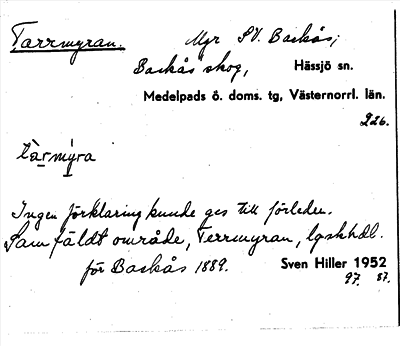 Tarrmyran. Myr SV. Baskås;
Baskås skog, Hässjö sn.
Medelpads ö. doms. tg, Västernorrl. län.
226.
tàrmýra
Ingen förklaring kunde ges till förleden.
Samfäldt område, Terrmyran, lgskhdl.
för Baskås 1889. Sven Hiller 1952
97. 87.